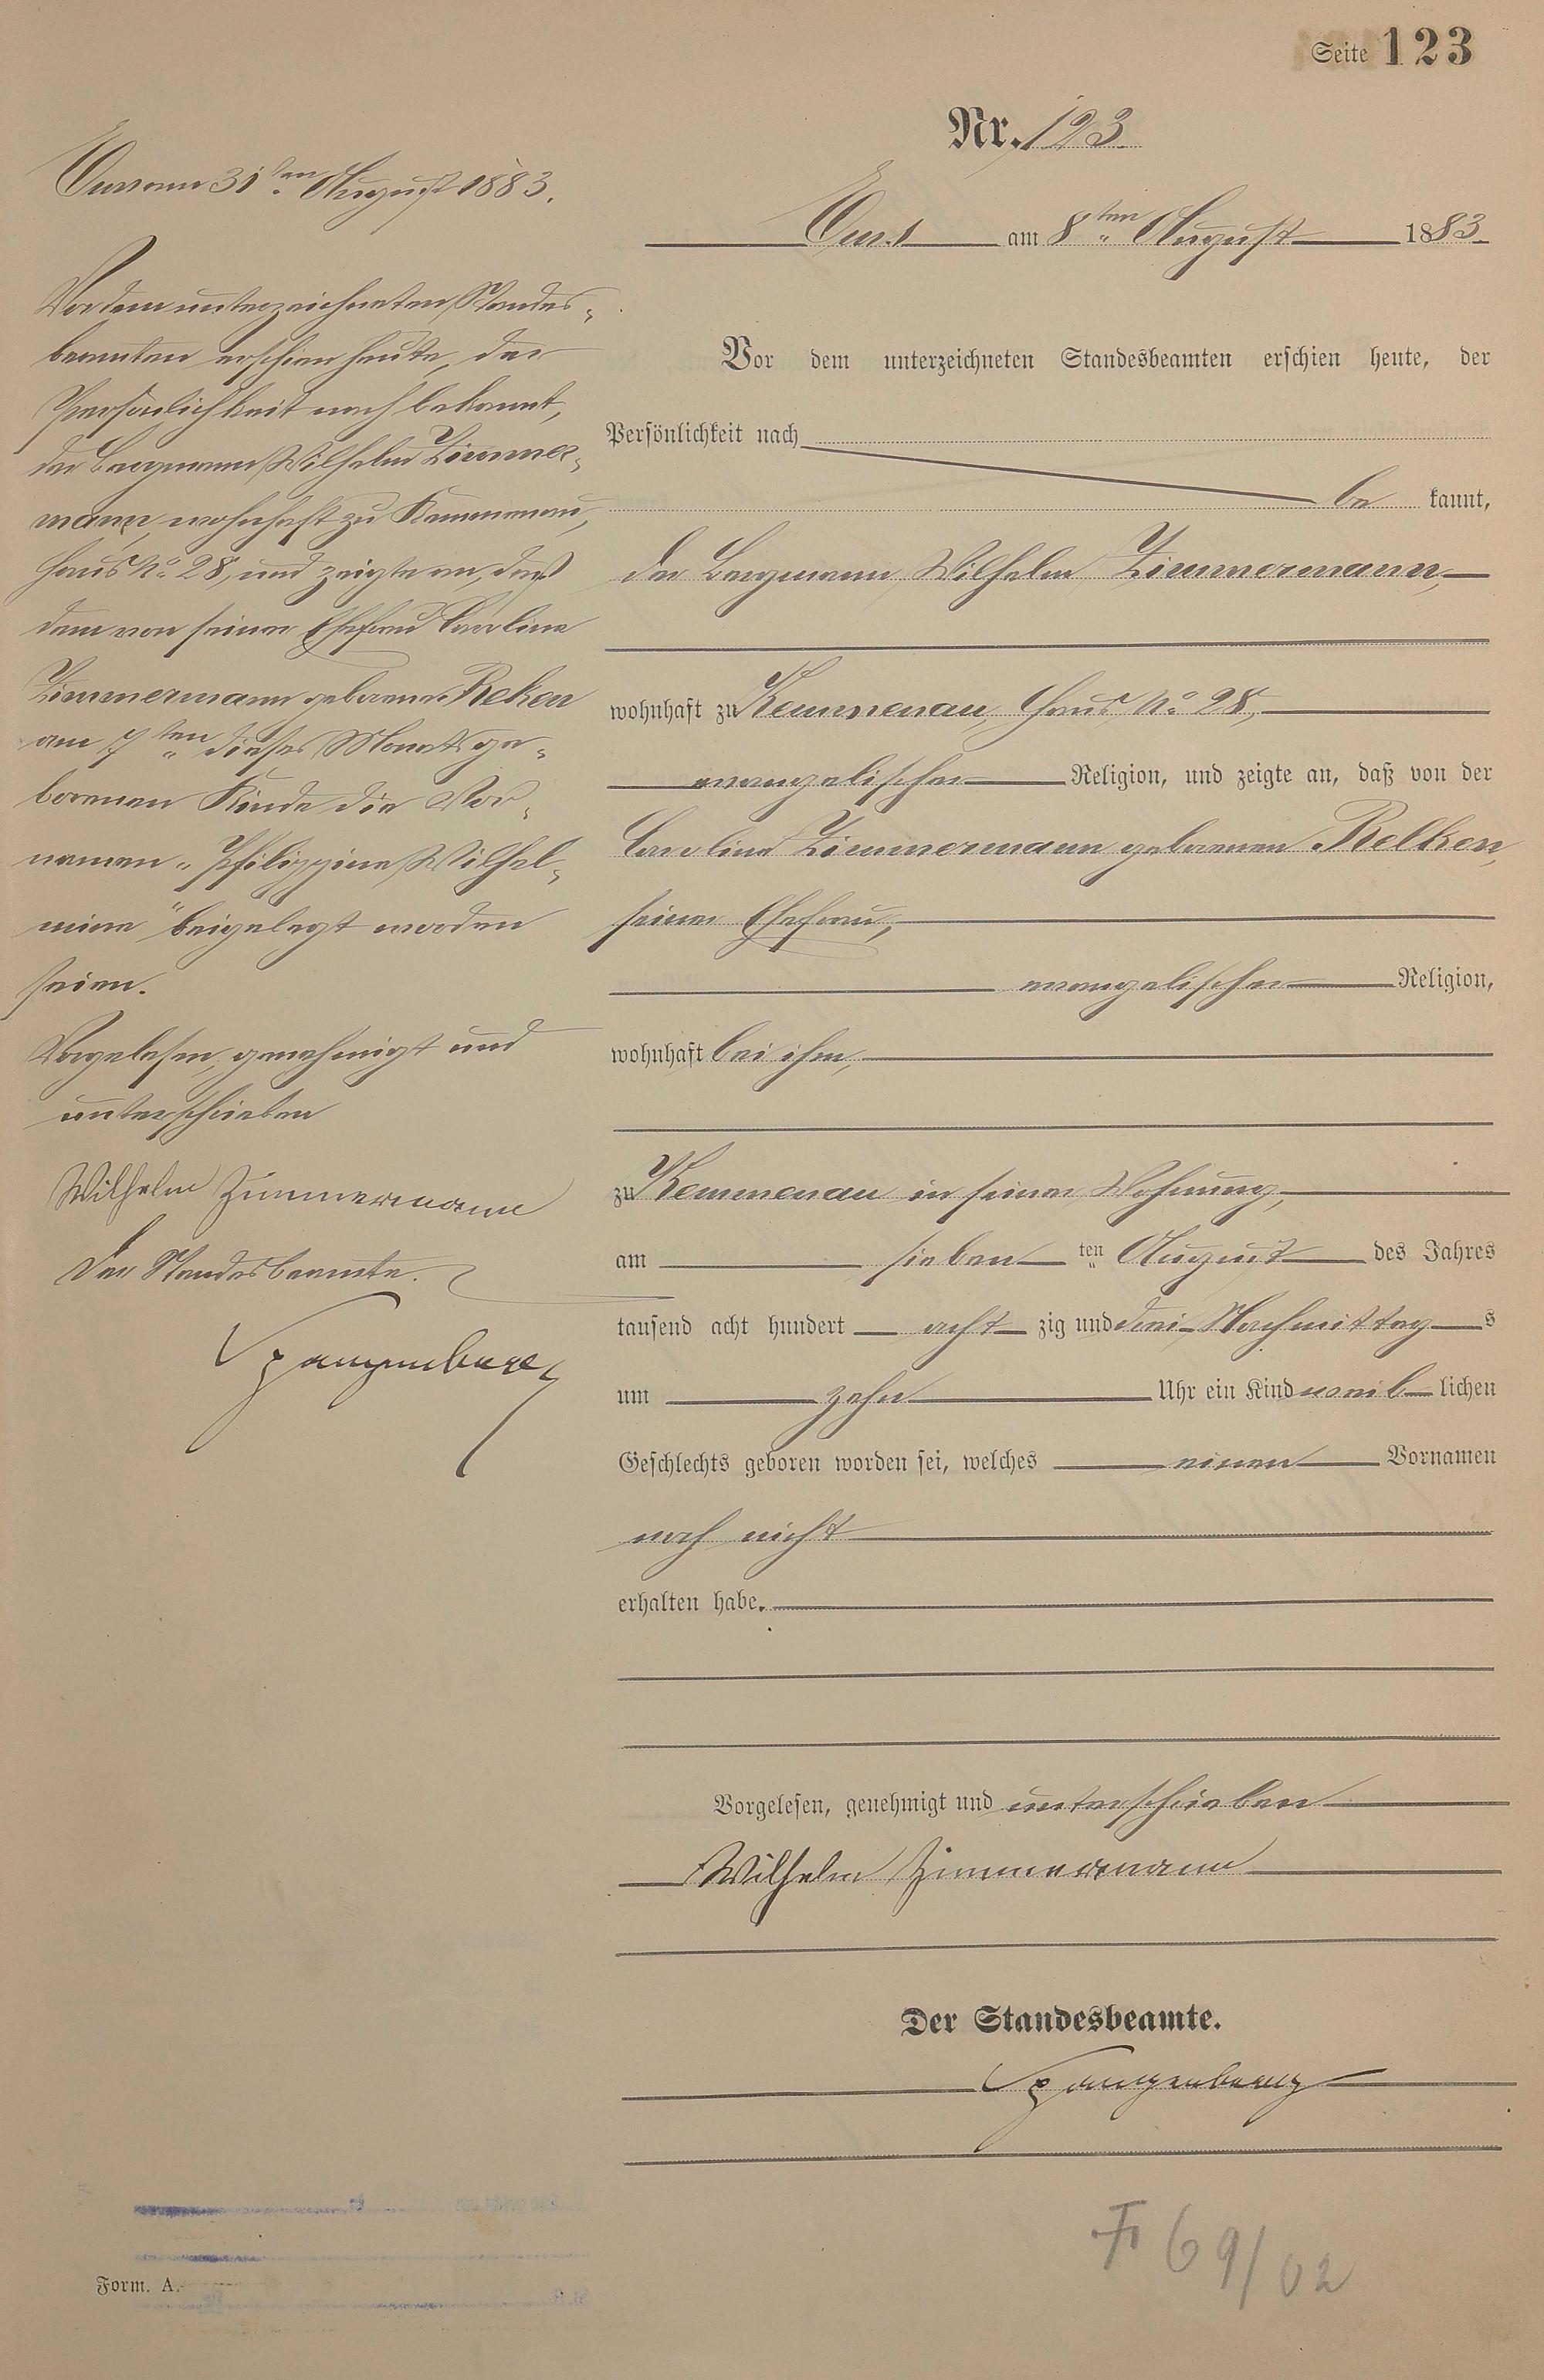 Seite 123
Nr. 123.
Ems am 8ten August 1883.
Vor dem unterzeichneten Standesbeamten erschien heute, der
Persönlichkeit nach
be kannt,
der Bergmann Wilhelm Zimmermann,
wohnhaft zu Kemmenau, Haus No. 28,
evangelischer Religion, und zeigte an, daß von der
Caroline Zimmermann geborenen Relken,
seiner Ehefrau,
evangelischer Religion,
wohnhaft bei ihm,
zu Kemmenau in seiner Wohnung,
am sieben ten August des Jahres
tausend acht hundert acht zig und drei Nachmittag s
um zehn Uhr ein Kind weib lichen
Geschlechts geboren worden sei, welches einen Vornamen
noch nicht
erhalten habe.
Vorgelesen, genehmigt und unterschrieben
Wilhelm Zimmermann
Der Standesbeamte.
Spangenberg
Ems am 31ten August 1883.
Vor dem unterzeichneten Standes-
beamten erschien heute, der
Persönlichkeit nach bekannt,
der Bergmann Wilhelm Zimmer-
mann, wohnhaft zu Kemmenau,
Haus No. 28, und zeigte an, daß
dem von seiner Ehefrau Caroline
Zimmermann geborenen Reken
am 7ten dieses Monats ge-
borenen Kinde die Vor-
namen "Philippine Wilhel-
mine" beigelegt worden
seien.
Vorgelesen, genehmigt und
unterschrieben
Wilhelm Zimmermann
Der Standesbeamte.
Spangenberg
Form. A.
F 69/02